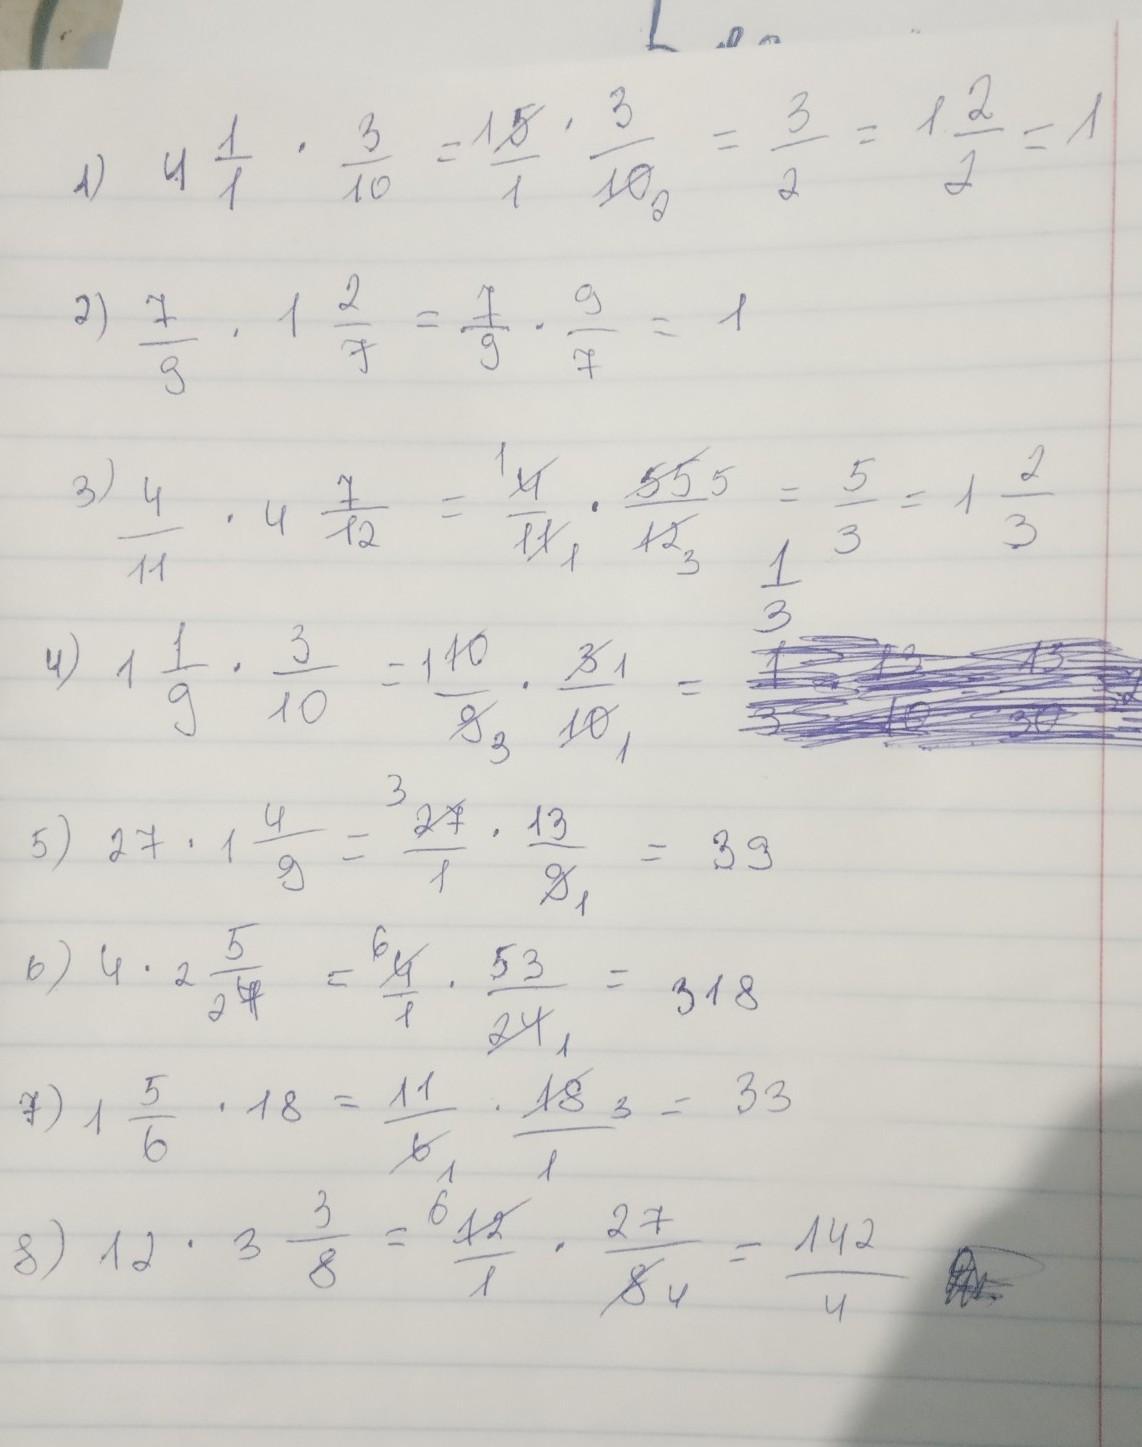 1) 4 1/1 · 3/10 = 1 5/1 · 3/10 2 = 3/2 = 1 2/2 = 1
2) 7/9 · 1 2/7 = 7/9 · 9/7 = 1
3) 4/11 · 4 7/12 = 1 4/11 1 · 55 5/12 3 = 5/3 = 1 2/3
4) 1 1/9 · 3/10 = 1 10/9 3 · 3 1/10 1 = 1/3
5) 27 · 1 4/9 = 3 27/1 · 13/9 1 = 39
6) 4 · 2 5/24 = 6 4/1 · 53/24 1 = 318
7) 1 5/6 · 18 = 11/6 1 · 18 3/1 = 33
8) 12 · 3 3/8 = 6 12/1 · 27/8 4 = 142/4